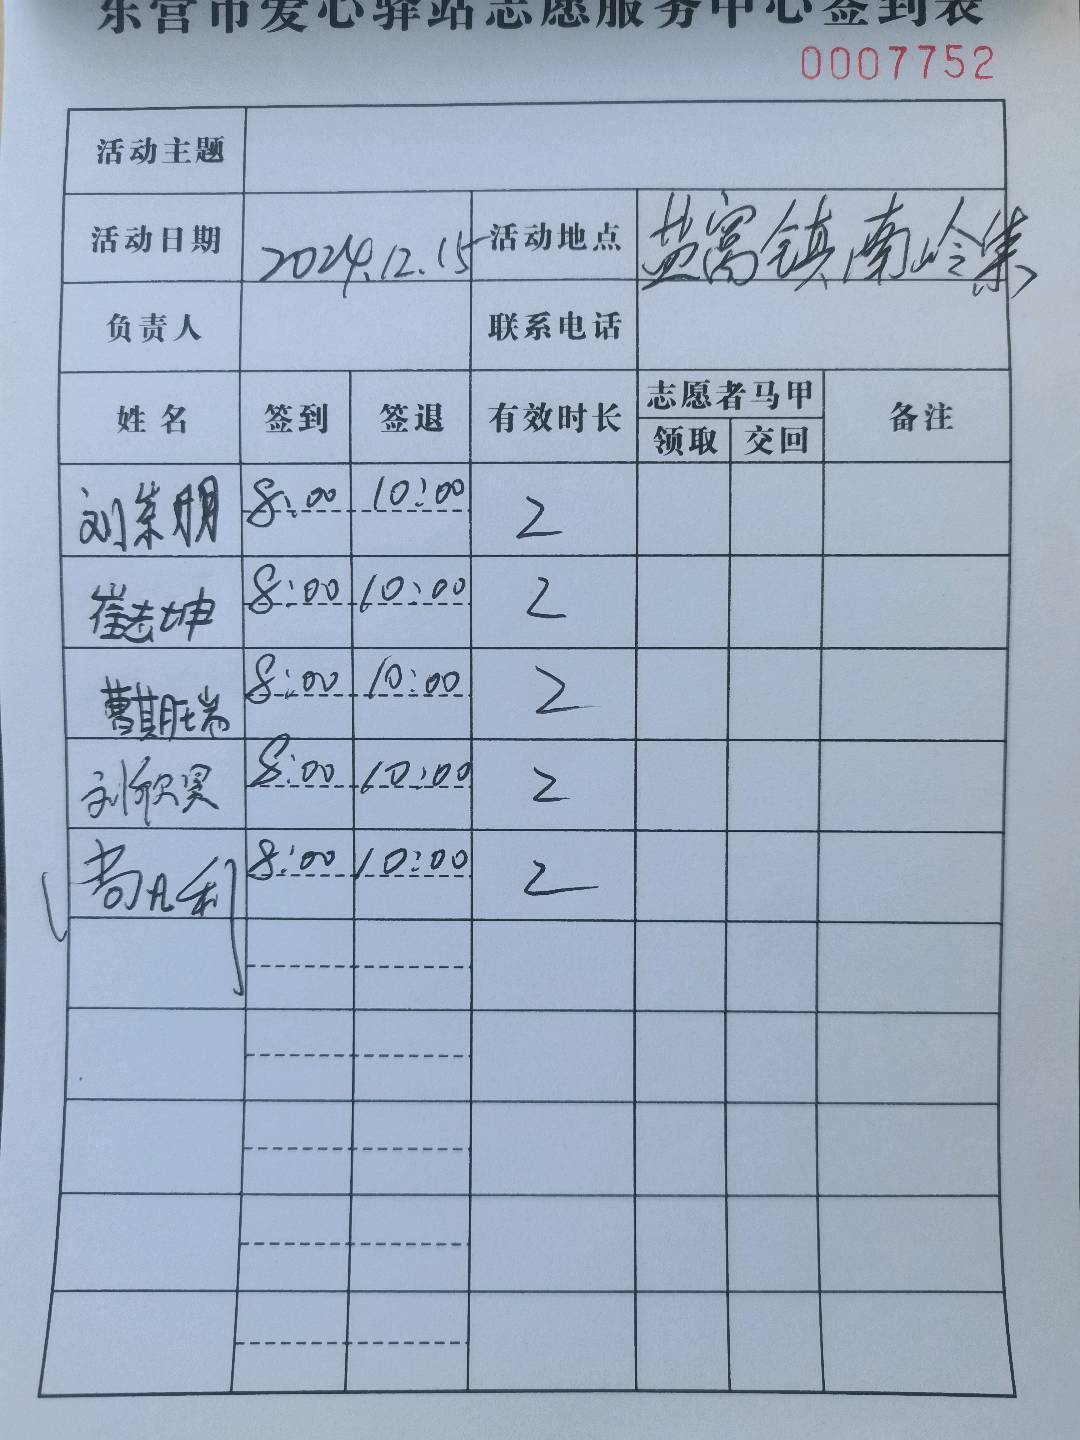 东营市爱心驿站志愿服务中心签到表
0007752
活动主题
活动日期 2024.12.15 活动地点 盐窝镇南岭集
负责人 联系电话
姓名 签到 签退 有效时长 志愿者马甲 备注
领取 交回
刘荣朋 8:00 10:00 2
崔志坤 8:00 10:00 2
曹其旺 8:00 10:00 2
刘欣昊 8:00 10:00 2
尚凡利 8:00 10:00 2